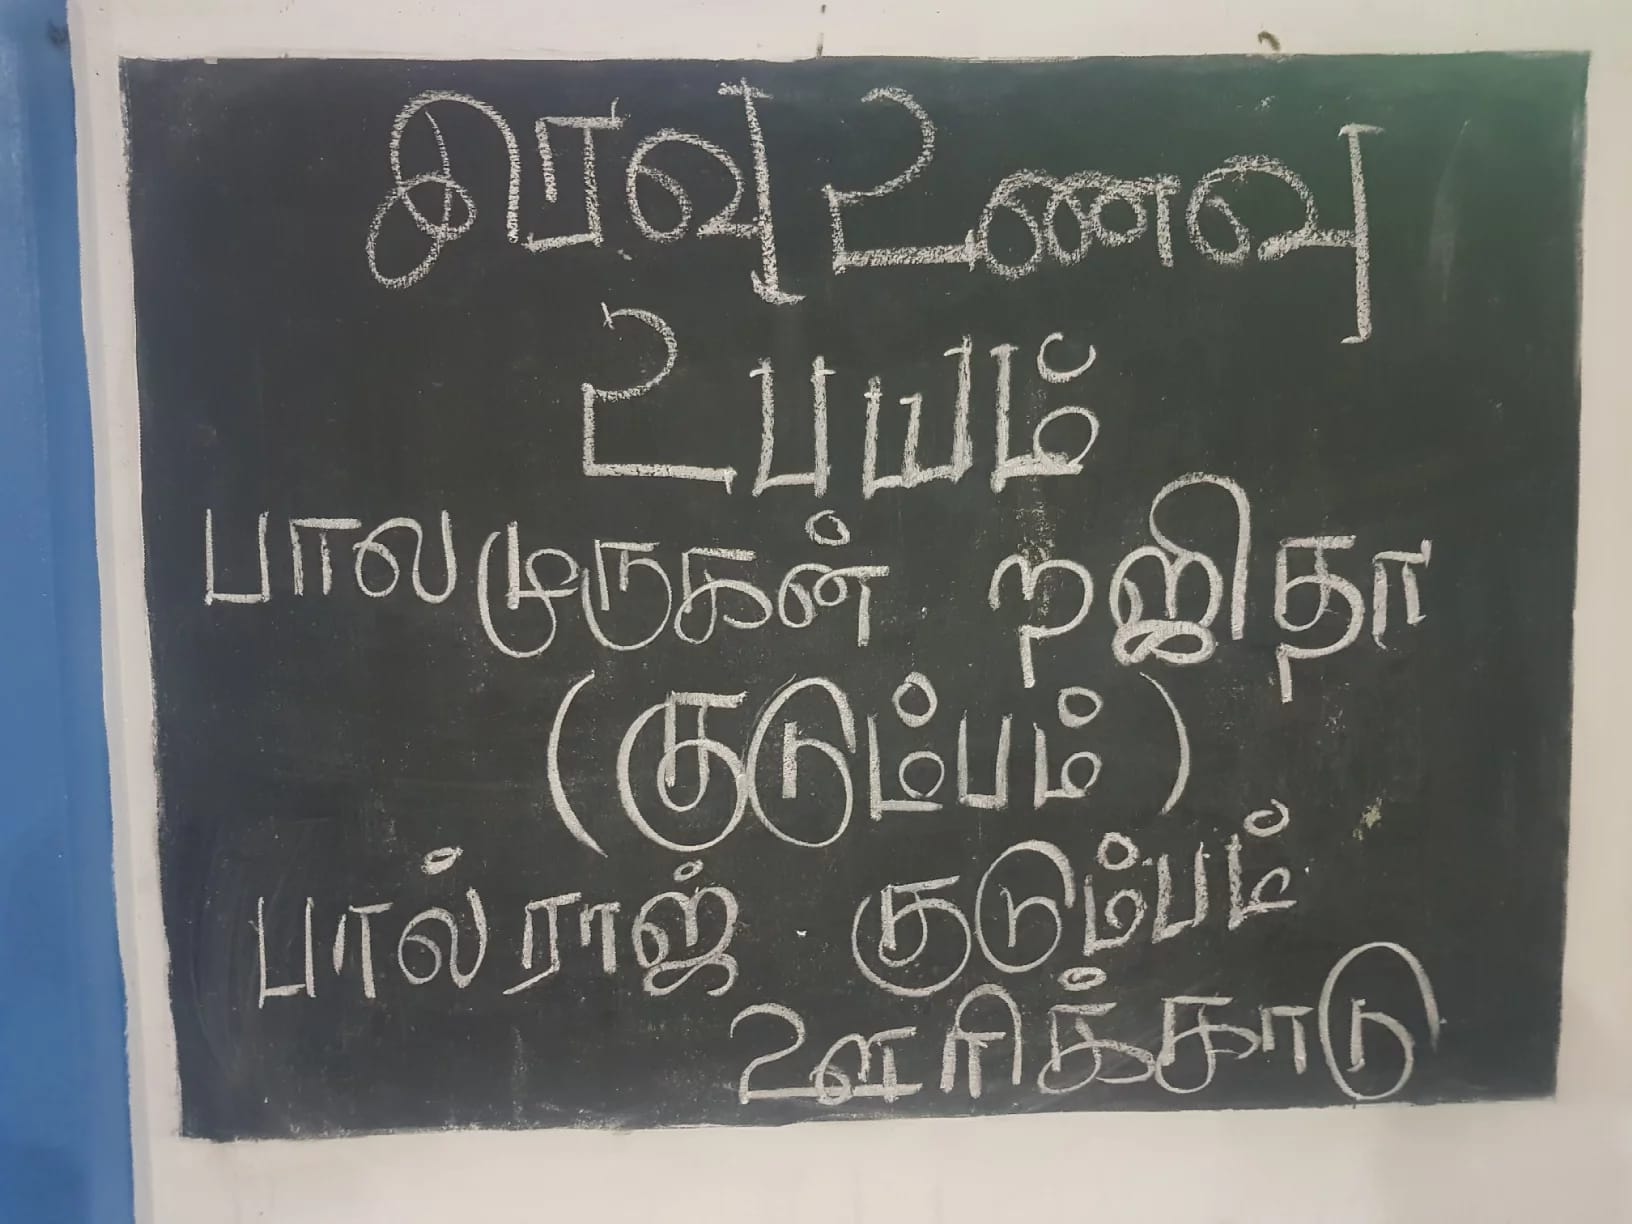 இரவு உணவு
உபயம்
பாலமுருகன் றஜிதா
(குடும்பம்)
பால்ராஜ் . குடும்பம்
ஊரிக்காடு